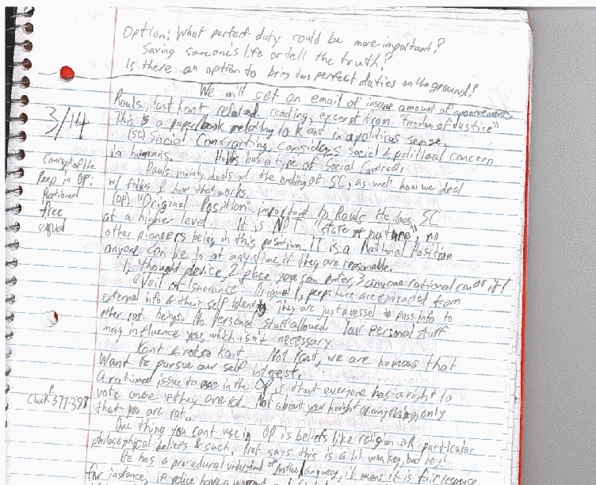 Option: What perfect duty could be more important?
Saving someone's life or tell the truth?
Is there an option to bring two perfect duties on the ground?
We will get an email of insane amount of
3/14
Rawls, last Kant related reading, excerpt from "Theory of Justice"
This is a paper/book relating to Kant in a political sense.
(SC) Social Contracting, considers social & political concern
in humans. Hobbs has a type of social contract
Rawls mainly deals w/ the ending of SC, as well how we deal
w/ folks & how that works.
Concept of the
Peep in OP:
Rational
free
equal
(OP) "Original Position" important to Rawls. He does SC
at a higher level. It is NOT "state of nature", no
other pioneers being in this position. IT is a Rational Position
anyone can be in at any time if they are reasonable.
1. thought device 2. place you can enter 3. anyone rational can do it
Veil of ignorance: Original peeps here are extracted from
external info & their self identity. They are just a vessel to pass info to
other rat. beings. No personal stuff allowed. Your personal stuff
may influence you, which isn't necessary.
Kant & not so Kant. Not Kant, we are humans that
Want to pursue our self interest.
A rational issue to use in the OP is that everyone has a right to
vote once they are 18. Not about your height or anything, only
that you are rat.
371-393
One thing you cant use in OP is beliefs like religion or particular
philosophical beliefs & such. Prof says this is a lil wonkey, but hey!
He has a procedural understand of justice anyway, it means it is fair response
for instance, ie police have a